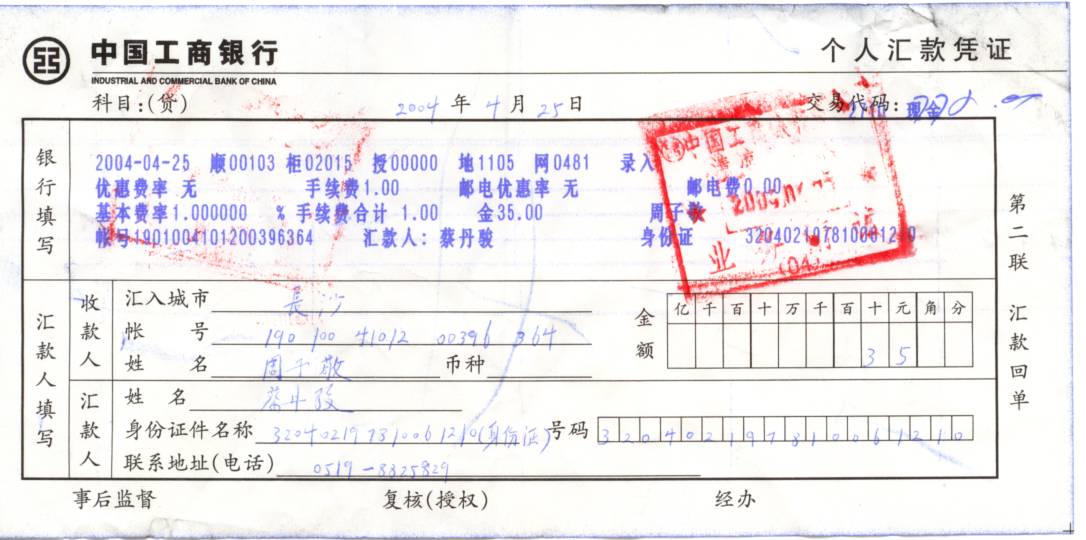 中国工商银行
INDUSTRIAL AND COMMERCIAL BANK OF CHINA
个人汇款凭证
科目:(贷) 2004 年 4 月 25 日 交易代码: 现金
银行填写
2004-04-25 顺00103 柜02015 授00000 地1105 网0481 录入
优惠费率 无 手续费1.00 邮电优惠率 无 邮电费0.00
基本费率1.000000 % 手续费合计 1.00 金35.00 周子敬
帐号1901004101200396364 汇款人: 蔡丹骏 身份证
中国工
业
汇款人填写
收款人
汇入城市 長沙
帐号 190 100 41012 00396 364
姓名 周子敬 币种
金额 亿 千 百 十 万 千 百 十 元 角 分
3 5
汇款人
姓名 蔡丹骏
身份证件名称 320402197810061210(身份证) 号码 320402197810061210
联系地址(电话) 0519-8825829
事后监督 复核(授权) 经办
第二联 汇款回单